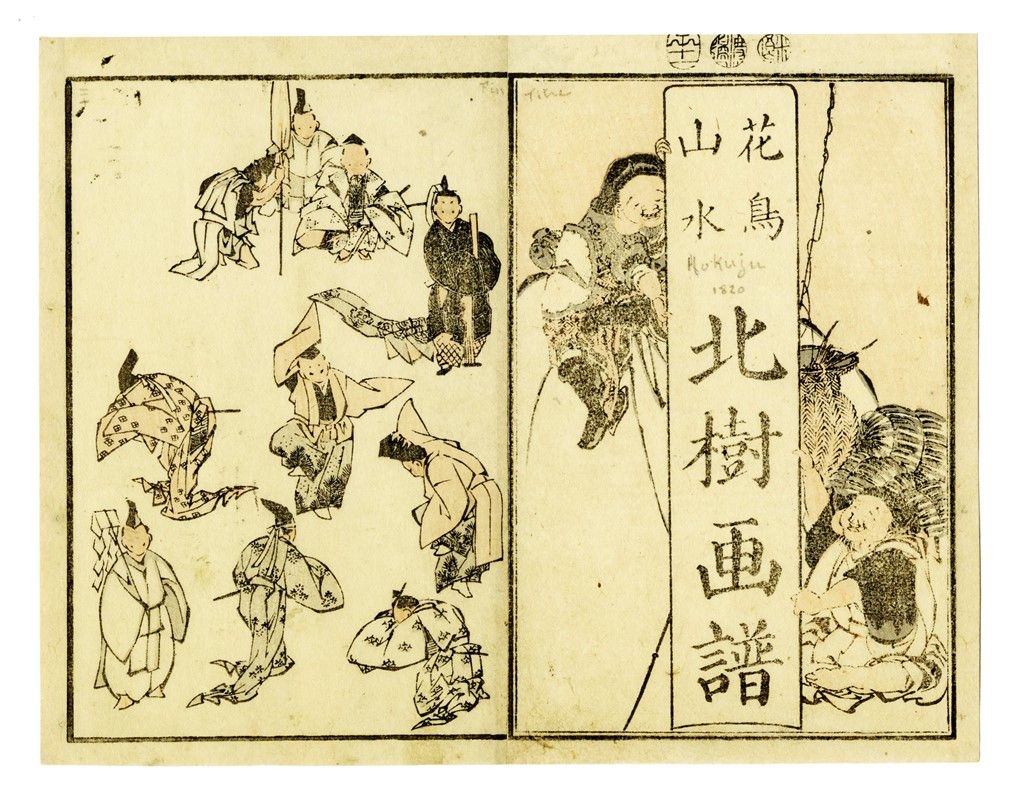 花鳥
山水
Hokuju
1820
北樹画譜